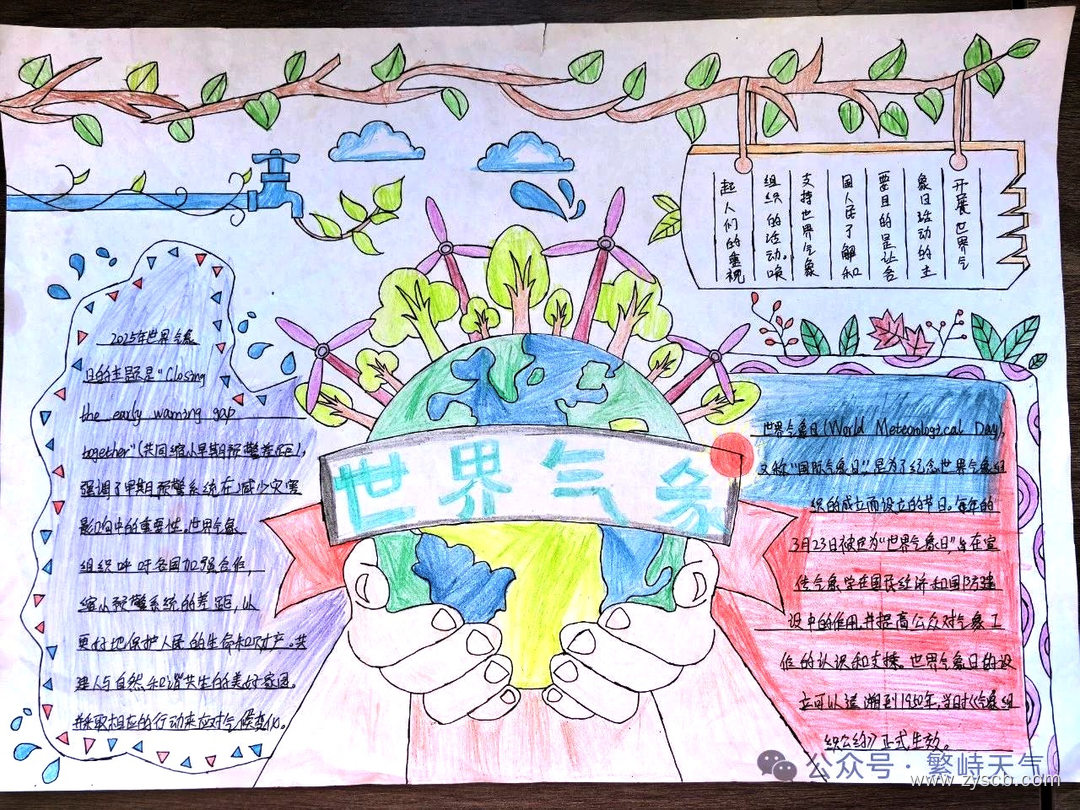 开展世界气
象日活动的主
要目的是让各
国人民了解和
支持世界气象
组织的活动。唤
起人们的重视
2025年世界气象
日的主题是“Closing
the early warning gap
together”(共同缩小早期预警差距),
强调了早期预警系统在减少灾害
影响中的重要性。世界气象
组织呼吁各国加强合作,
缩小预警系统的差距,以
更好地保护人民的生命和财产。共
建人与自然和谐共生的美好家园,
并采取相应的行动来应对气候变化。
世界气象
世界气象日(World Meteorological Day),
又称“国际气象日”是为了纪念世界气象组
织的成立而设立的节日。每年的
3月23日被定为“世界气象日”旨在宣
传气象学在国民经济和国防建
设中的作用,并提高公众对气象工
作的认识和支持。世界气象日的设
立可以追溯到1950年,当时《气象组
织公约》正式生效。
公众号·繁峙天气
www.zyscb.com